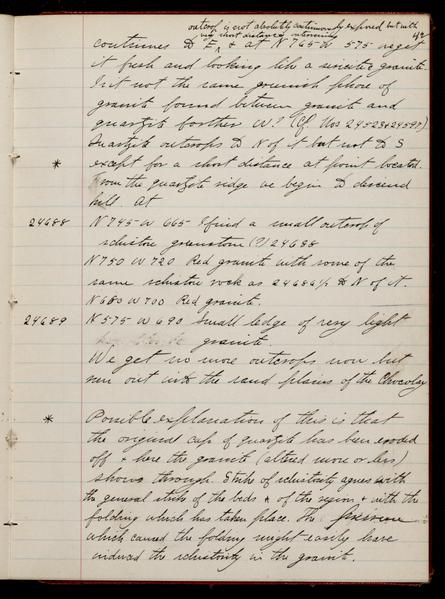 outcrop is not absolutely continuously exposed but with
very short distances intervening
49
continues D E, & at N 765 W 575 we get
it fresh and looking like a sericitic granite.
Is it not the same greenish phase of
granite found between granite and
quartzite farther W? (Cf. Nos 24523 & 24597)
Quartzite outcrops D N of it but not D S
* except for a short distance at point located.
From the quartzite ridge we begin D descend
hill at
24688 N 745 W 665 I find a small outcrop of
schistose greenstone (?) 24688
N 750 W 720 Red granite with some of the
same schistose rock as 24686 1/2 D N of it.
N 680 W 700 Red granite.
24689 N 575 W 690 Small ledge of very light
granite.
We get no more outcrops now but
run out into the sand plains of the Chocolay
* Possible explanation of this is that
the original cap of quartzite has been eroded
off & here the granite (altered more or less)
shows through. Strike of schistosity agrees with
the general strike of the beds & of the region & with the
folding which has taken place. The pressure
which caused the folding might easily have
induced the schistosity in the granite.